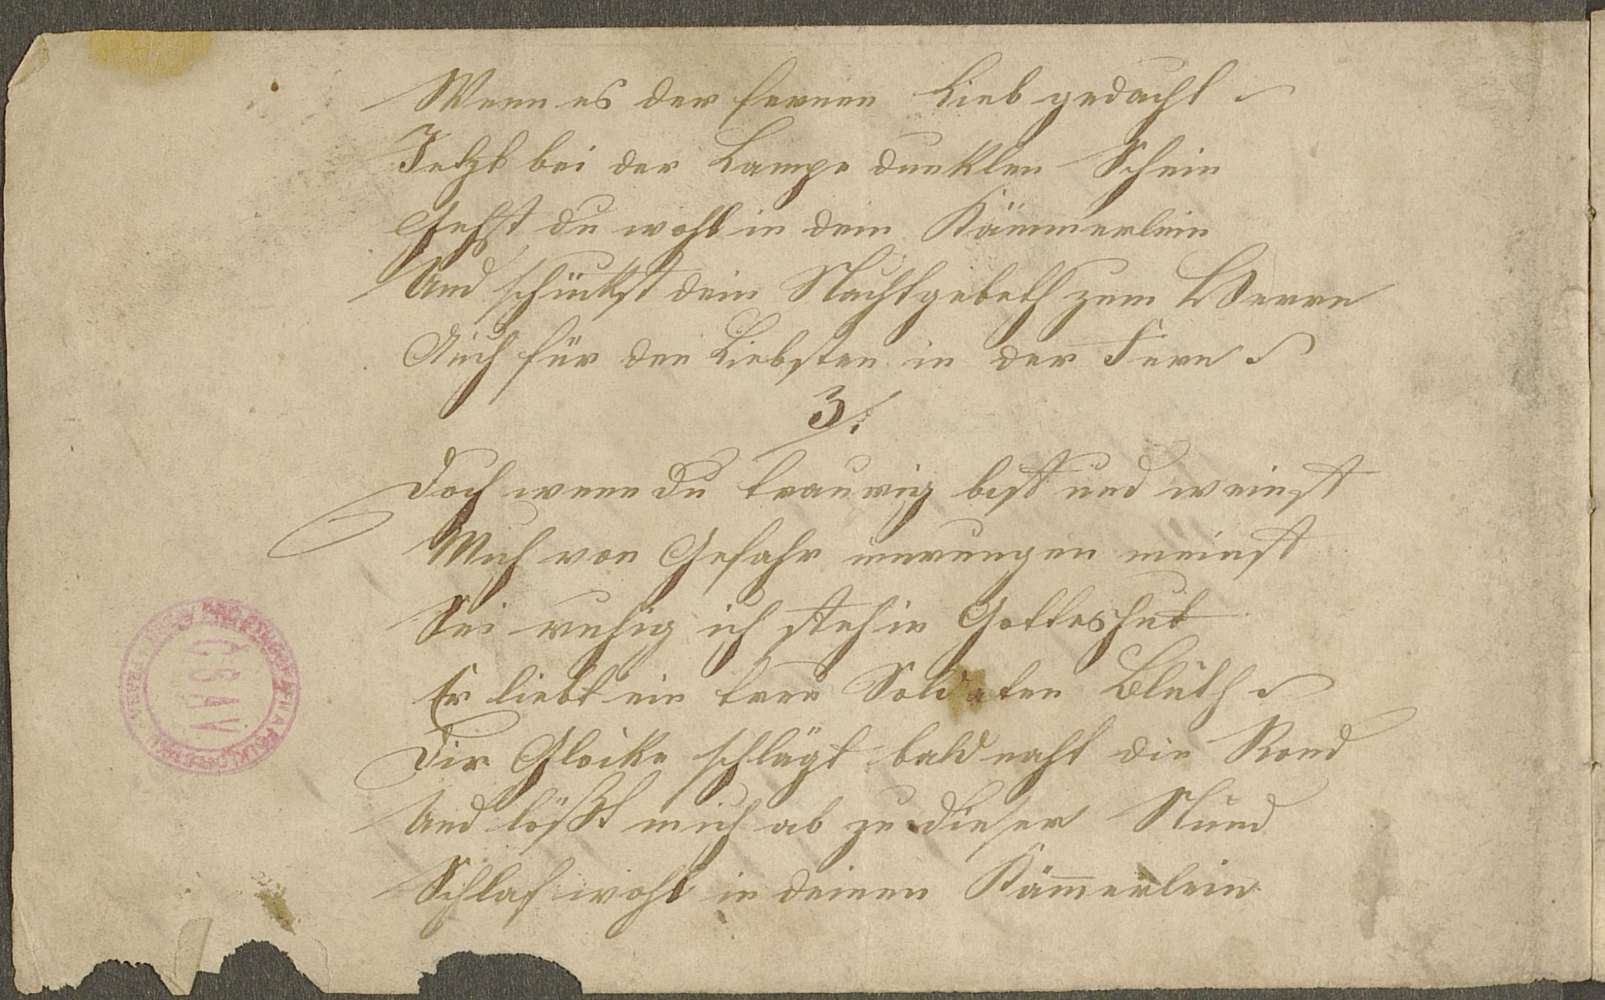 Wenn es der fernen Lieb gedacht
Jetzt bei der Lampe dunklen Schein
Gehst du wohl in dein Kämmerlein
Und schückst dein Nachtgebeth zum Herrn
Auch für den Liebsten in der Fern
3/:
Doch wenn du traurig bist und weinst
Mich von Gefahr umrungen meinst
Sei ruhig ich steh in Gotteshut
Er liebt ein treu Soldaten Bluth
Die Glocke schlägt bald naht die Rond
Und lößt mich ab zu dieser Stund
Schlaf wohl in deinen Kämerlein
ČSAV